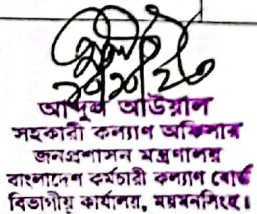 আব্দুল আউয়াল
সহকারী কল্যাণ অফিসার
জনপ্রশাসন মন্ত্রণালয়
বাংলাদেশ কর্মচারী কল্যাণ বোর্ড
বিভাগীয় কার্যালয়, ময়মনসিংহ।